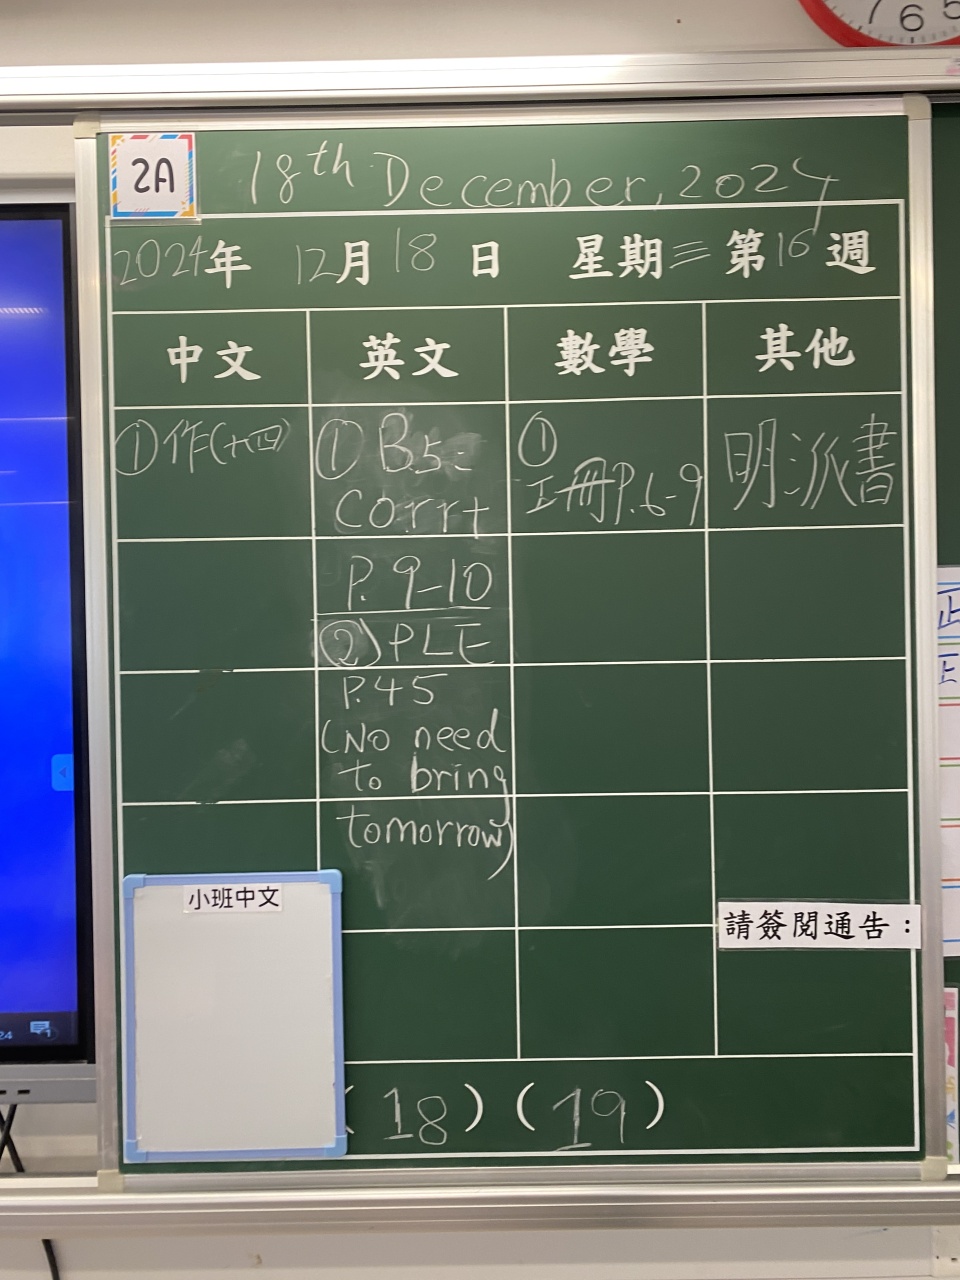 7 6 5
2A
18th December, 2024
2024年 12月18日 星期三 第16週
中文 英文 數學 其他
①作(十四)
① B5:
Corr+
P. 9-10
② PLE
P.45
(No need
to bring
tomorrow)
①
工冊P.6-9
明派書
小班中文
請簽閱通告：
(18) (19)
24
1
正
正